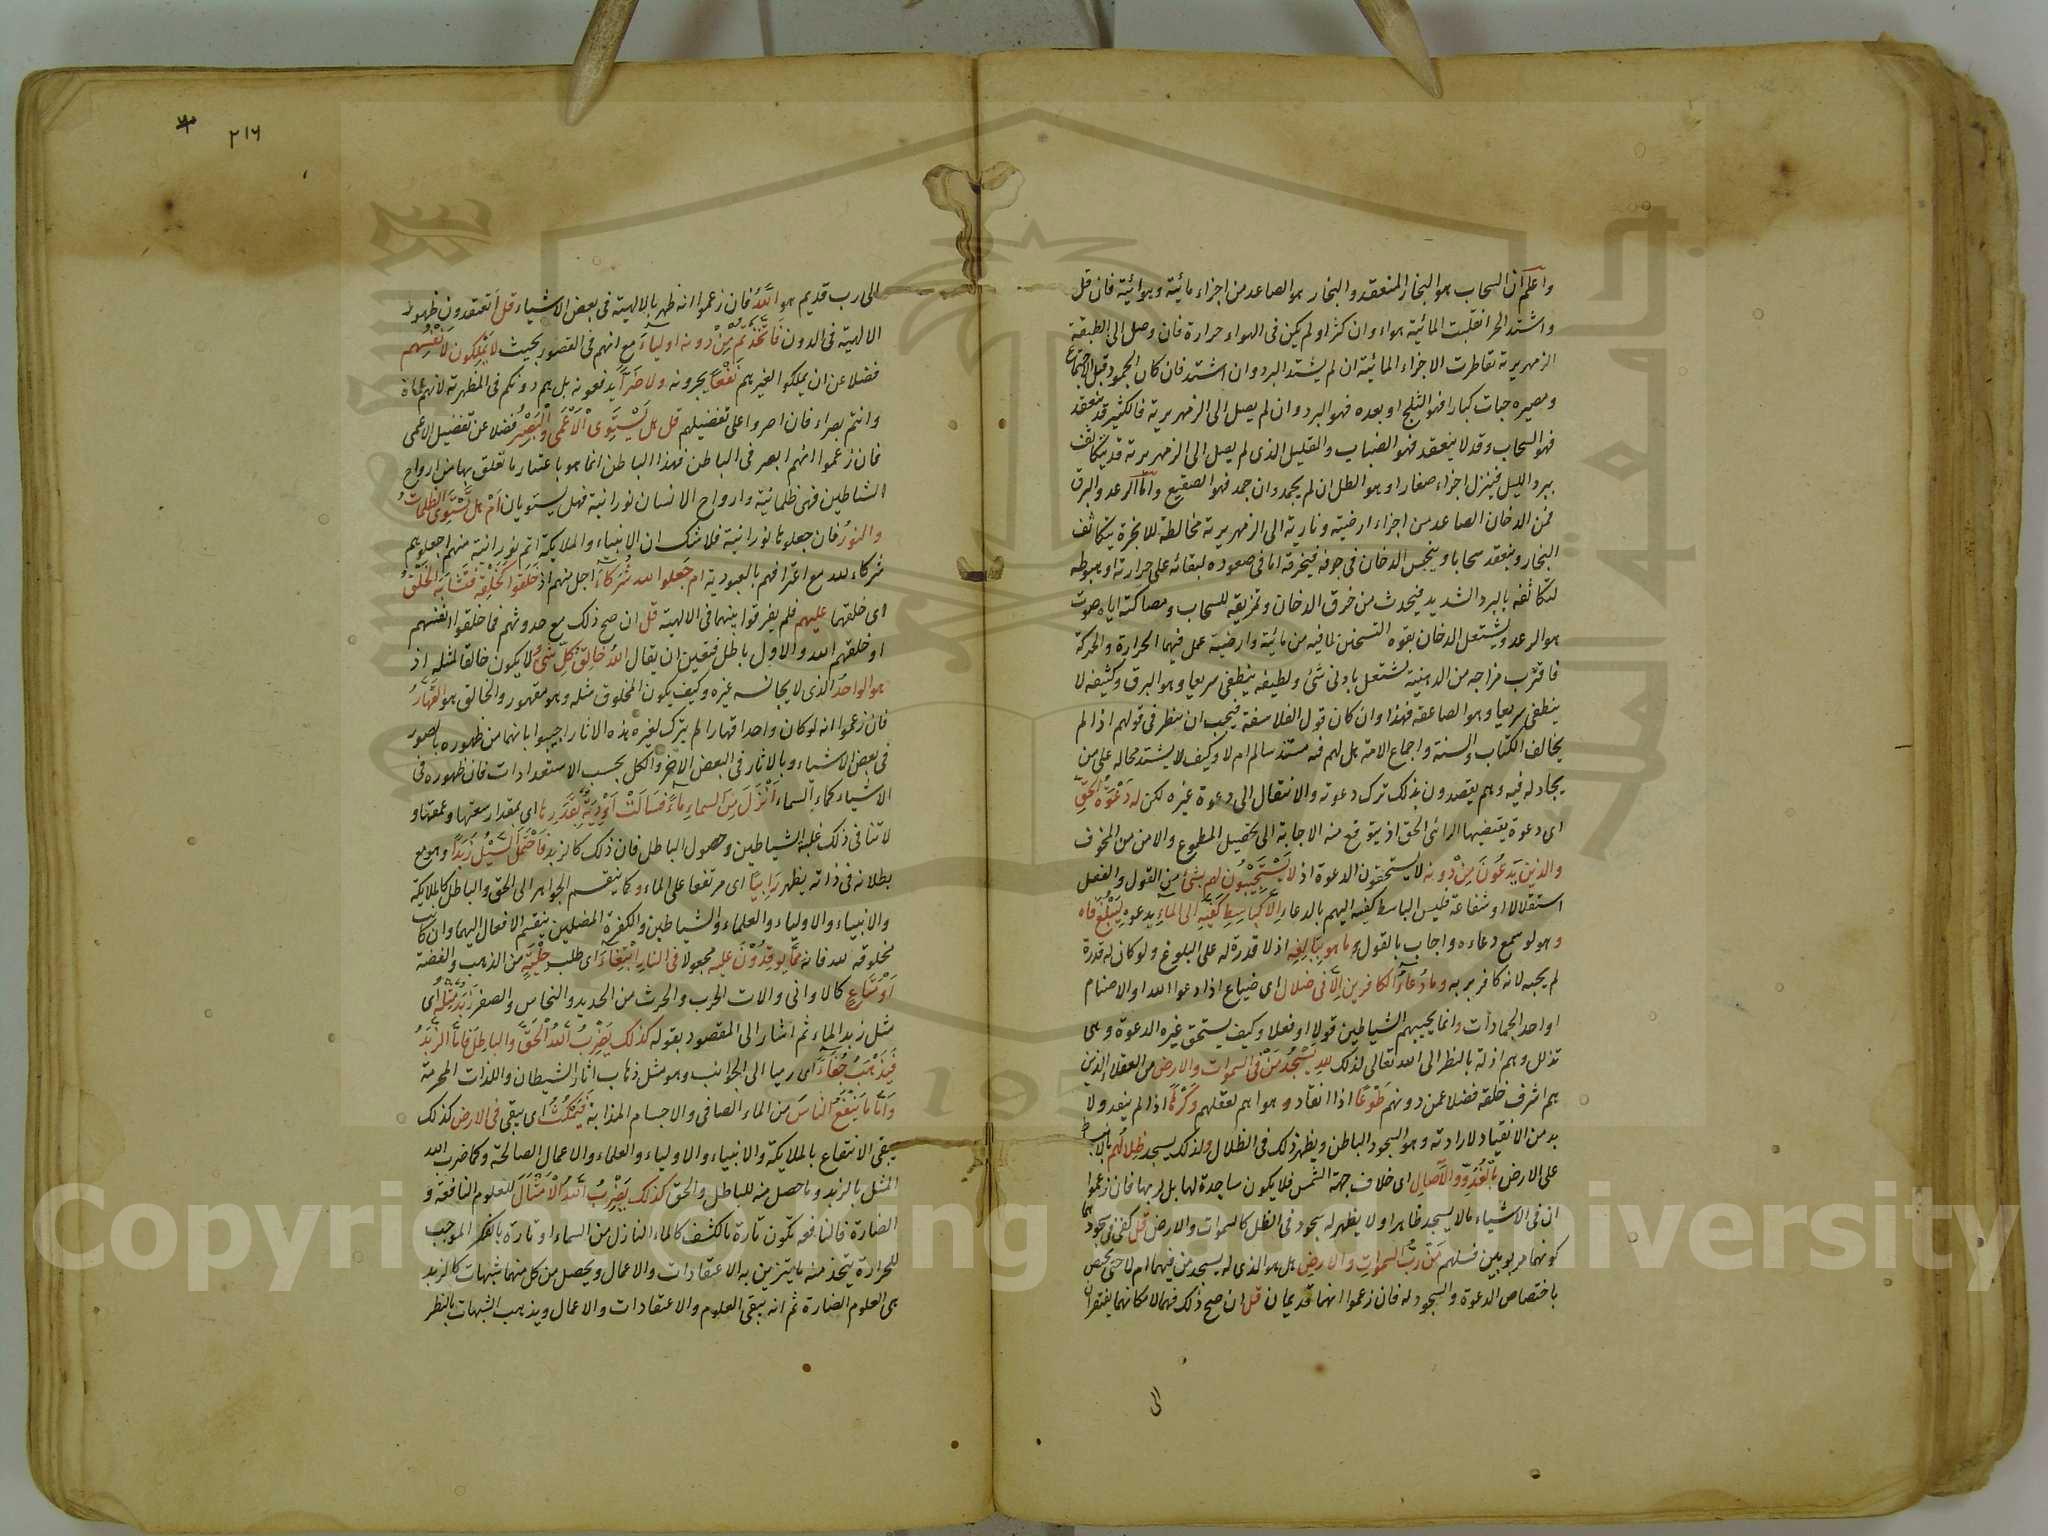 واعلم ان السحاب هو البخار المنعقد والبخار هو الصاعد من اجزاء مائية وهوائية فان قل
واشتد الحر انقلبت المائية هواء وان كثر او لم يكن فى الهواء حرارة فان وصل الى الطبقة
الزمهريرية تقاطرت الاجزاء المائية ان لم يشتد البرد وان اشتد فان كان الجمود قبل الاجتماع
ومصيره حبات كبارا فهو الثلج او بعده فهو البرد وان لم يصل الى الزمهريرية فالكثير قد ينعقد
فهو السحاب وقد لا ينعقد فهو الضباب والقليل الذى لم يصل الى الزمهريرية قد يتكاثف
ببرد الليل فينزل اجزاء صغارا وهو الطل ان لم يجمد وان جمد فهو الصقيع واما الرعد والبرق
فمن الدخان الصاعد من اجزاء ارضية ونارية الى الزمهريرية مخالطة للابخرة يتكاثف
البخار وينعقد سحابا وينحبس الدخان فى جوفه فيخرقه اما فى صعوده لبقائه على حرارته او هبوطه
لتكاثفه بالبرد الشديد فيحدث من خرق الدخان وتمزيقه للسحاب ومصاكته اياه صوت
هو الرعد ويشتعل الدخان بقوة التسخين لما فيه من مائية وارضية عمل فيهما الحرارة والحركة
فاقترب مزاجه من الدهنية تشتعل بادنى شئ ولطيفه ينطفى سريعا وهو البرق وكثيفه لا
ينطفى سريعا وهو الصاعقة فهذا وان كان قول الفلاسفة فيجب ان ينظر فى قولهم اذا لم
يخالف الكتاب والسنة واجماع الامة بل لهم فيه مستند سالم ام لا وكيف لا يشتد محاله على من
يجادله فيه وهم يقصدون بذلك ترك دعوته والانتقال الى دعوة غيره لكن له دعوة الحق
اى دعوة يقتضيها الرائى الحق اذ يتوقع منه الاجابة الى تحصيل المطموع والامن من المخوف
والذين يدعون من دونه لا يستحقون الدعوة اذ لا يستجيبون لهم بشئ من القول والفعل
استقلالا او شفاعة فليس الباسط كفيه اليهم بالدعاء الا كباسط كفيه الى الماء يدعوه ليبلغ فاه
وهو لو سمع دعاءه واجاب بالقول وما هو ببالغه اذ لا قدرة له على البلوغ ولو كان له قدرة
لم يجبه لانه كافر بربه وما دعاء الكافرين الا فى ضلال اى ضياع اذا دعوا الله او الاصنام
او احد الجمادات وانما يجيبهم الشياطين قولا او فعلا وكيف يستحق غيره الدعوة وهى
تذلل وهم اذلة بالنظر الى الله تعالى لذلك لله يسجد من فى السموات والارض من العقلاء الذين
هم اشرف خلقه فضلا عمن دونهم طوعا اذا انقاد وهواهم لعقلهم وكرها اذا لم ينقد ولا
بد من الانقياد لارادته وهو السجود الباطن ويظهر ذلك فى الظلال ولذلك يسجد ظلالهم بالانبساط
على الارض بالغدو والاصال اى خلاف جهة الشمس فلا يكون ساجدة لها بل لربها فان زعموا
ان فى الاشياء ما لا يسجد ظاهرا ولا يظهر له سجود فى الظل كالسموات والارض قل كفى فى سجودهما
كونهما مربوبين فسلهم من رب السموات والارض هل هو الذى له يسجد من فيهما ام لا حتى يختص
باختصاص الدعوة والسجود له فان زعموا انهما قديمان قل ان صح ذلك فهما لامكانهما يفتقران
الى
٢١٦
الى رب قديم هو الله فان زعموا انه ظهر بالالهية فى بعض الاشياء قل أتعتقدون ظهور
الالهية فى الدون فاتخذتم من دونه اولياء مع انهم فى القصور بحيث لا يملكون لانفسهم
فضلا عن ان يملكوا لغيرهم نفعا يجرونه ولا ضرا يدفعونه بل هم دونكم فى المظهرية لانهم عماة
وانتم بصراء فان اصروا على تفضيلهم قل هل يستوى الاعمى والبصير فضلا عن تفضيل الاعمى
فان زعموا انهم ابصر فى الباطن فهذا الباطن انما هو باعتبار ما تعلق بها من ارواح
الشياطين فهى ظلمانية وارواح الانسان نورانية فهل يستويان ام هل تستوى الظلمات
والنور فان جعلوها نورانية فلا شك ان الانبياء والملايكة اتم نورانية منهم اجعلوهم
شركاء لله مع اعترافهم بالعبودية ام جعلوا لله شركاء اجل منهم اذ خلقوا كخلقه فتشابه الخلق
اى خلقهما عليهم فلم يفرقوا بينهما فى الالهية قل ان صح ذلك مع حدوثهم فما خلقوا انفسهم
او خلقهم الله والاول باطل فتعين ان يقال الله خالق كل شئ لا يكون خالقا لمثله اذ
هو الواحد الذى لا يجانسه غيره وكيف يكون المخلوق مثله وهو مقهور والخالق هو القهار
فان زعموا انه لو كان واحدا قهارا لم يترك لغيره هذه الاثار اجيبوا بانهما من ظهوره بالصور
فى بعض الاشياء وبالاثار فى البعض الاخر والكل بحسب الاستعدادات فان ظهوره فى
الاشياء كماء السماء انزل من السماء ماء فسالت اودية بقدرها اى بمقدار سعتها وعمقها و
لا ينافى ذلك غلبة الشياطين وحصول الباطل فان ذلك كالزبد فاحتمل السيل زبدا وهو مع
بطلانه فى ذاته يظهر رابيا اى مرتفعا على الماء وكما ينقسم الجواهر الى الحق والباطل كالملايكة
والانبياء والاولياء والعلماء والشياطين والكفرة المضلين ينقسم الافعال اليهما وان كانت
مخلوقة لله فانه مما يوقدون عليه مجعولا فى النار ابتغاء اى طلب حلية من الذهب والفضة
او متاع كالاوانى والات الحرب والحرث من الحديد والنحاس والصفر زبد مثله اى
مثل زبد الماء ثم اشار الى المقصود بقوله كذلك يضرب الله الحق والباطل فاما الزبد
فيذهب جفاء اى رميا الى الجوانب وهو مثل ذهاب اثار الشيطان واللذات المحرمة
واما ما ينفع الناس من الماء الصافى والاجسام المذابة فيمكث اى يبقى فى الارض كذلك
يبقى الانتفاع بالملايكة والانبياء والاولياء والعلماء والاعمال الصالحة وكما ضرب الله
المثل بالزبد وما حصل منه للباطل والحق كذلك يضرب الله الامثال للعلوم النافعة و
الضارة فالنافعة تكون تارة بالكشف كالماء النازل من السماء او تارة بالفكر الموجب
للحرارة يتخذ منه ما يتزين به الاعتقادات والاعمال ويحصل من كل منهما شبهات كالزبد
هى العلوم الضارة ثم انه يبقى العلوم والاعتقادات والاعمال ويذهب الشبهات بالنظر
Copyright © King Saud University
جامعة الملك سعود
195